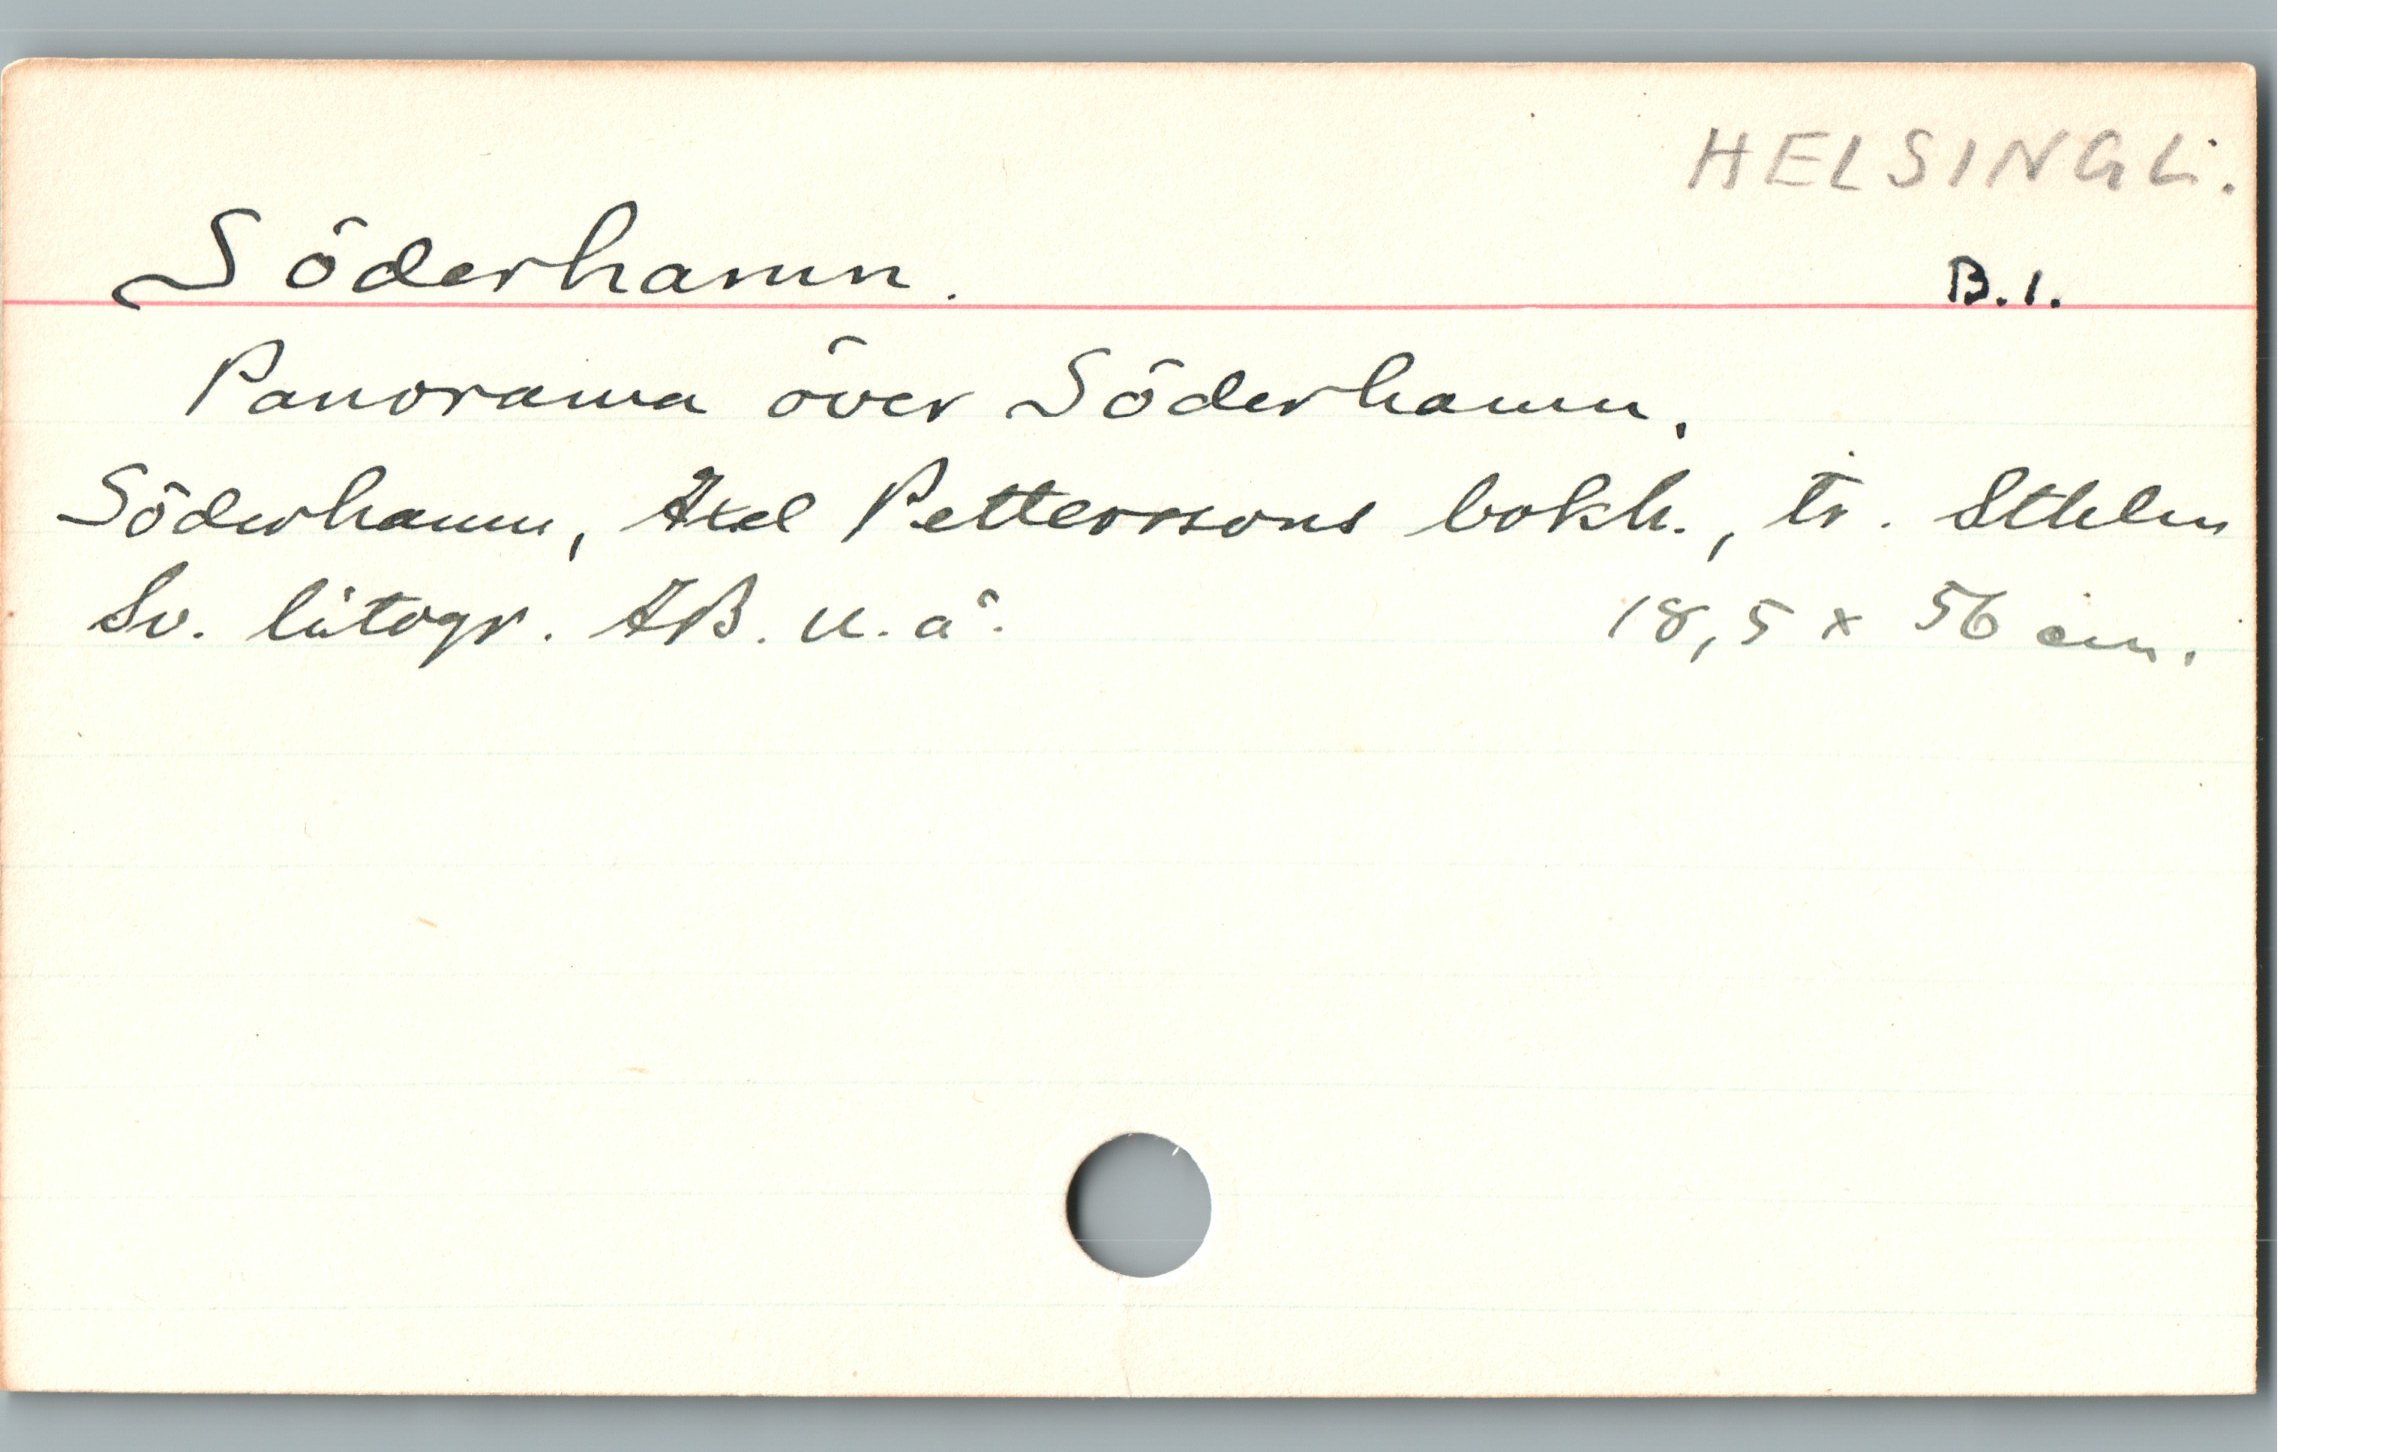 HELSINGL.
Söderhamn.
B.1.
Panorama över Söderhamn.
Söderhamn, Axel Petterssons bokh., tr. Sthlm
Sv. litogr. AB. u.å. 18,5 x 56 cm.